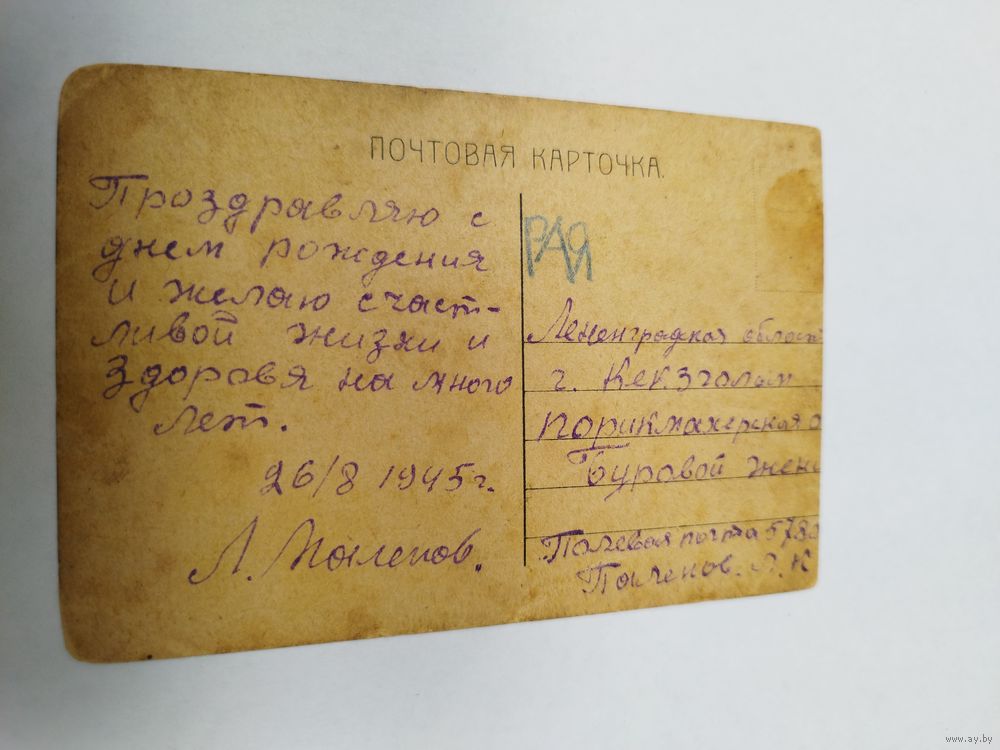 ПОЧТОВАЯ КАРТОЧКА.
Проздравляю с
днем рождения
и желаю счаст-
ливой жизни и
здоровя на много
лет.
26/8 1945 г.
Л.
РАЯ
Лененградская област
г. Кекзголм
порикмахерская
Буровой жен
Полевая почта 578
Л. К
www.ay.by